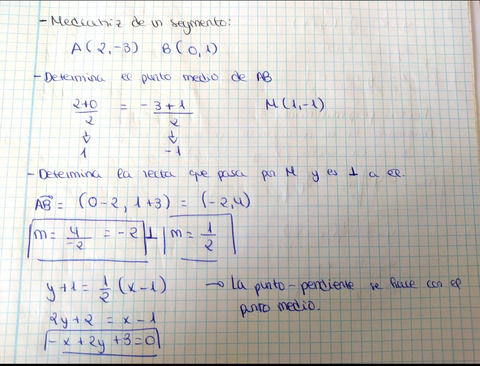 - Mediatriz de un segmento:
A(2,-3) B(0,1)
- Determina el punto medio de AB
2+0/2 = -3+1/2 M(1,-1)
↓ ↓
1 -1
- Determina la recta que pasa por M y es ⊥ a él.
AB = (0-2, 1+3) = (-2,4)
m = 4/-2 = -2 ⊥ m = 1/2
y+1 = 1/2 (x-1) → La punto-pendiente se hace con el
punto medio.
2y+2 = x-1
-x+2y+3=0